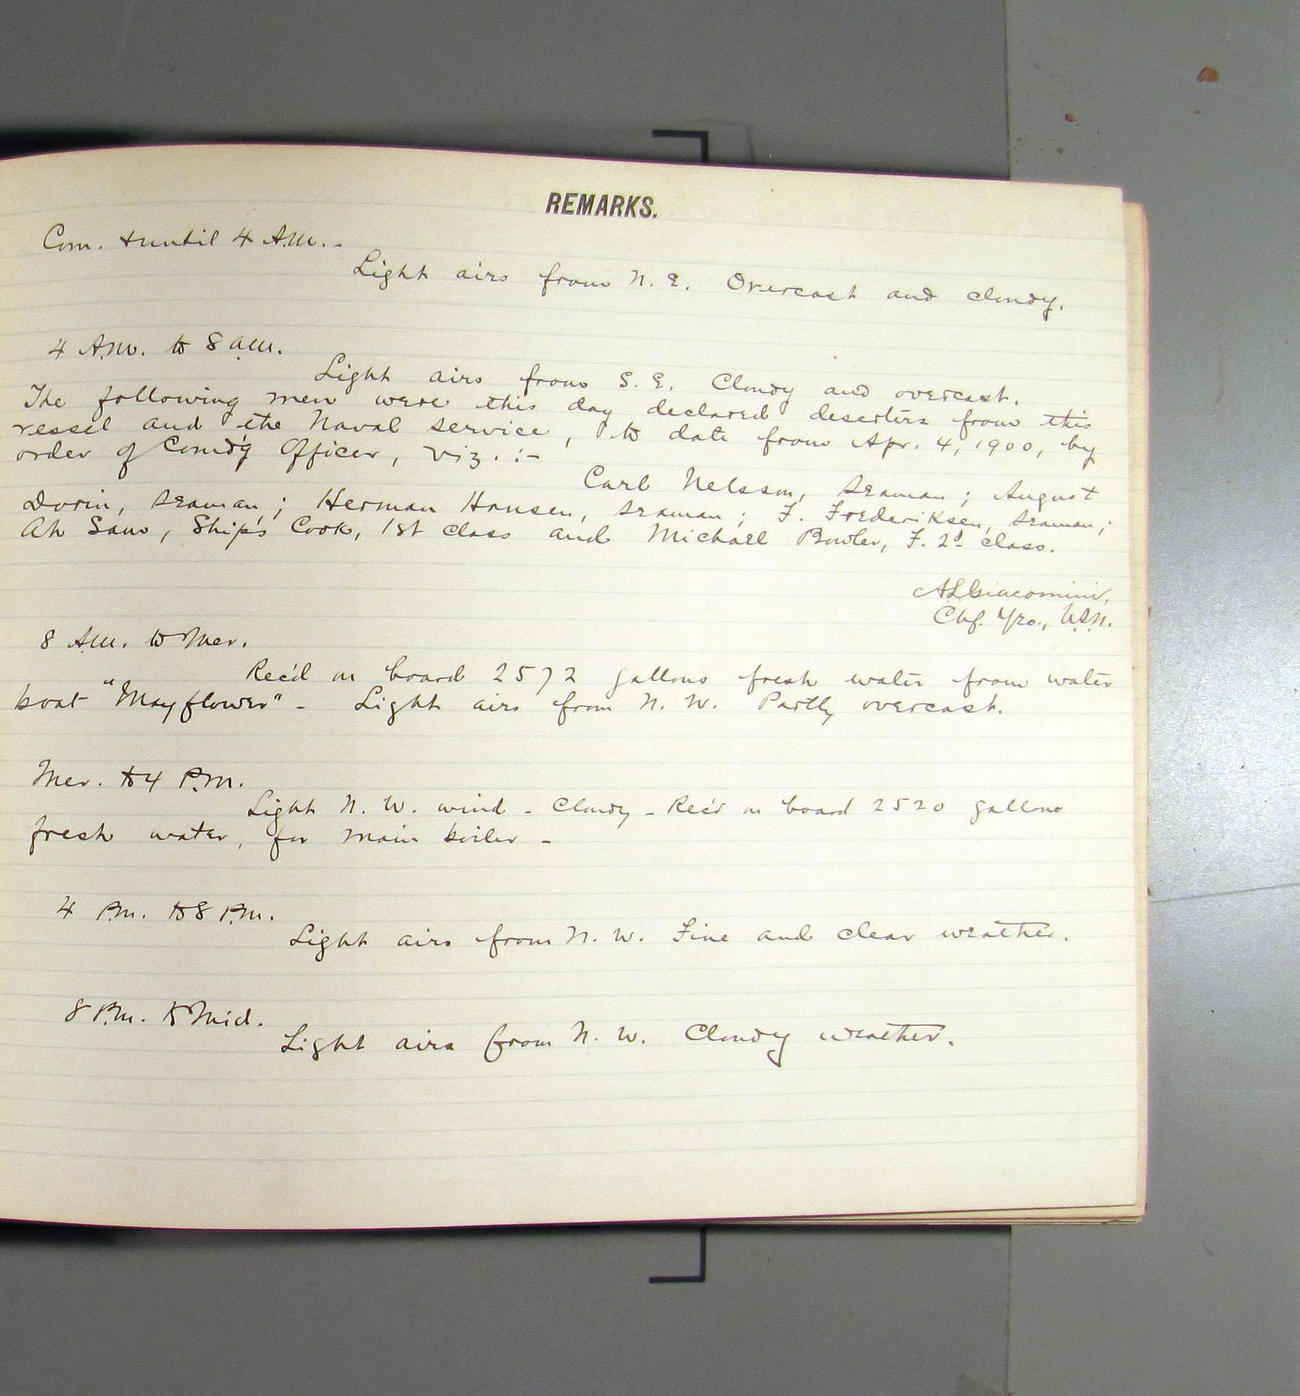 REMARKS.
Com. & until 4 A.M. -
Light airs from N. E. Overcast and cloudy.
4 A.M. to 8 a.m.
Light airs from S. E. Cloudy and overcast.
The following men were this day declared deserters from this
vessel and the Naval service, to date from Apr. 4, 1900, by
order of Com'd'g Officer, viz. :-
Carl Nelsson, seaman; August
Dorin, seaman; Herman Hansen, seaman; F. Frederiksen, seaman;
Ah Sam, Ship's Cook, 1st class and Michael Bowler, F. 2d class.
A L Giacomini,
Chf. Yeo., U.S.N.
8 A.M. to Mer.
Rec'd on board 2572 gallons fresh water from water
boat "Mayflower" - Light airs from N. W. Partly overcast.
Mer. to 4 P.M.
Light N. W. wind - Cloudy - Rec'd on board 2520 gallons
fresh water, for main boiler -
4 P.M. to 8 P.M.
Light airs from N. W. Fine and clear weather.
8 P.M. to Mid.
Light airs from N. W. Cloudy weather.